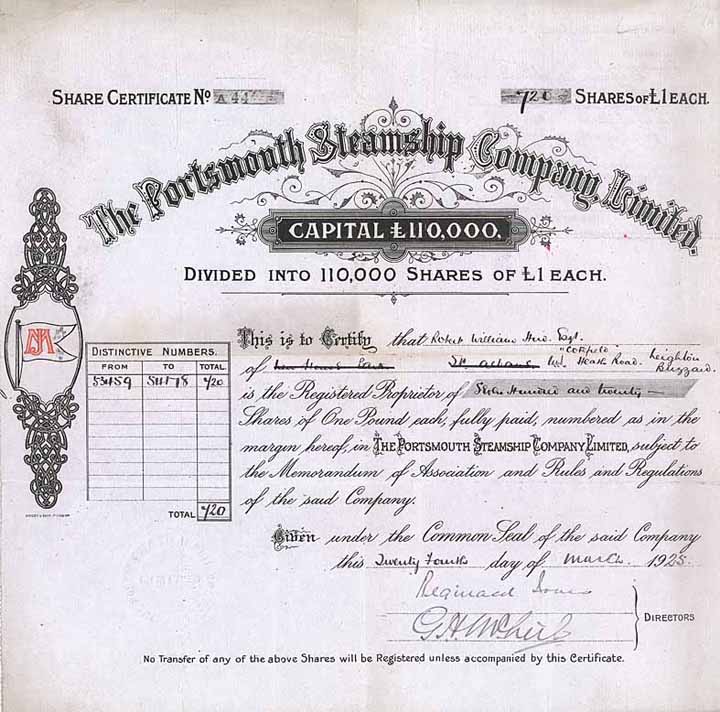 SHARE CERTIFICATE No A 44
720 SHARES OF £1 EACH.
The Portsmouth Steamship Company, Limited.
CAPITAL £110,000.
DIVIDED INTO 110,000 SHARES OF £1 EACH.
This is to Certify that Robert William Esqr.
of Heath Road, Leighton
Buzzard.
is the Registered Proprietor of Seven Hundred and twenty
Shares of One Pound each, fully paid, numbered as in the
margin hereof, in THE PORTSMOUTH STEAMSHIP COMPANY LIMITED, subject to
the Memorandum of Association and Rules and Regulations
of the said Company.
DISTINCTIVE NUMBERS.
FROM TO TOTAL.
720
TOTAL 720
Given under the Common Seal of the said Company
this Twenty Fourth day of March 1925.
Reginald
DIRECTORS
No Transfer of any of the above Shares will be Registered unless accompanied by this Certificate.